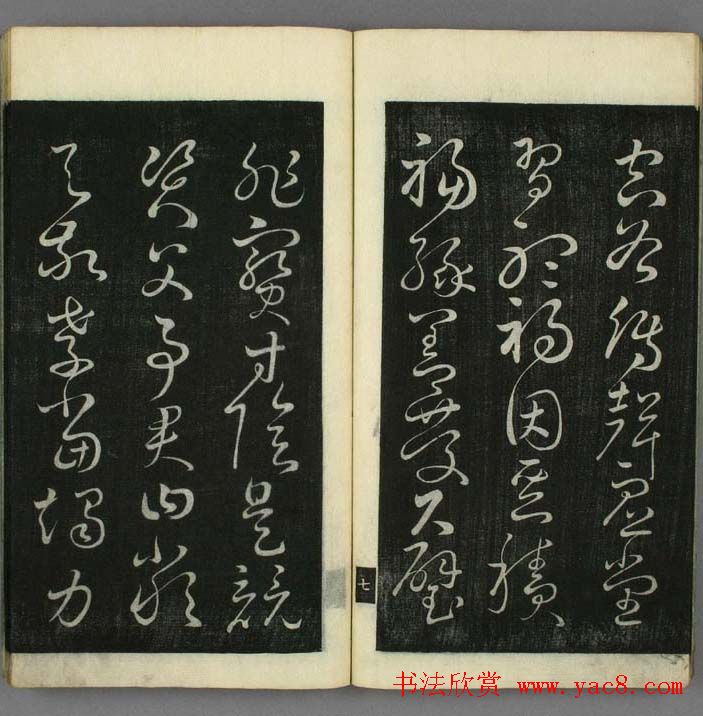 空谷傳聲虛堂
習聽禍因惡積
福緣善慶尺璧
七
非寶寸陰是競
資父事君曰嚴
與敬孝當竭力
书法欣赏 www.yac8.com